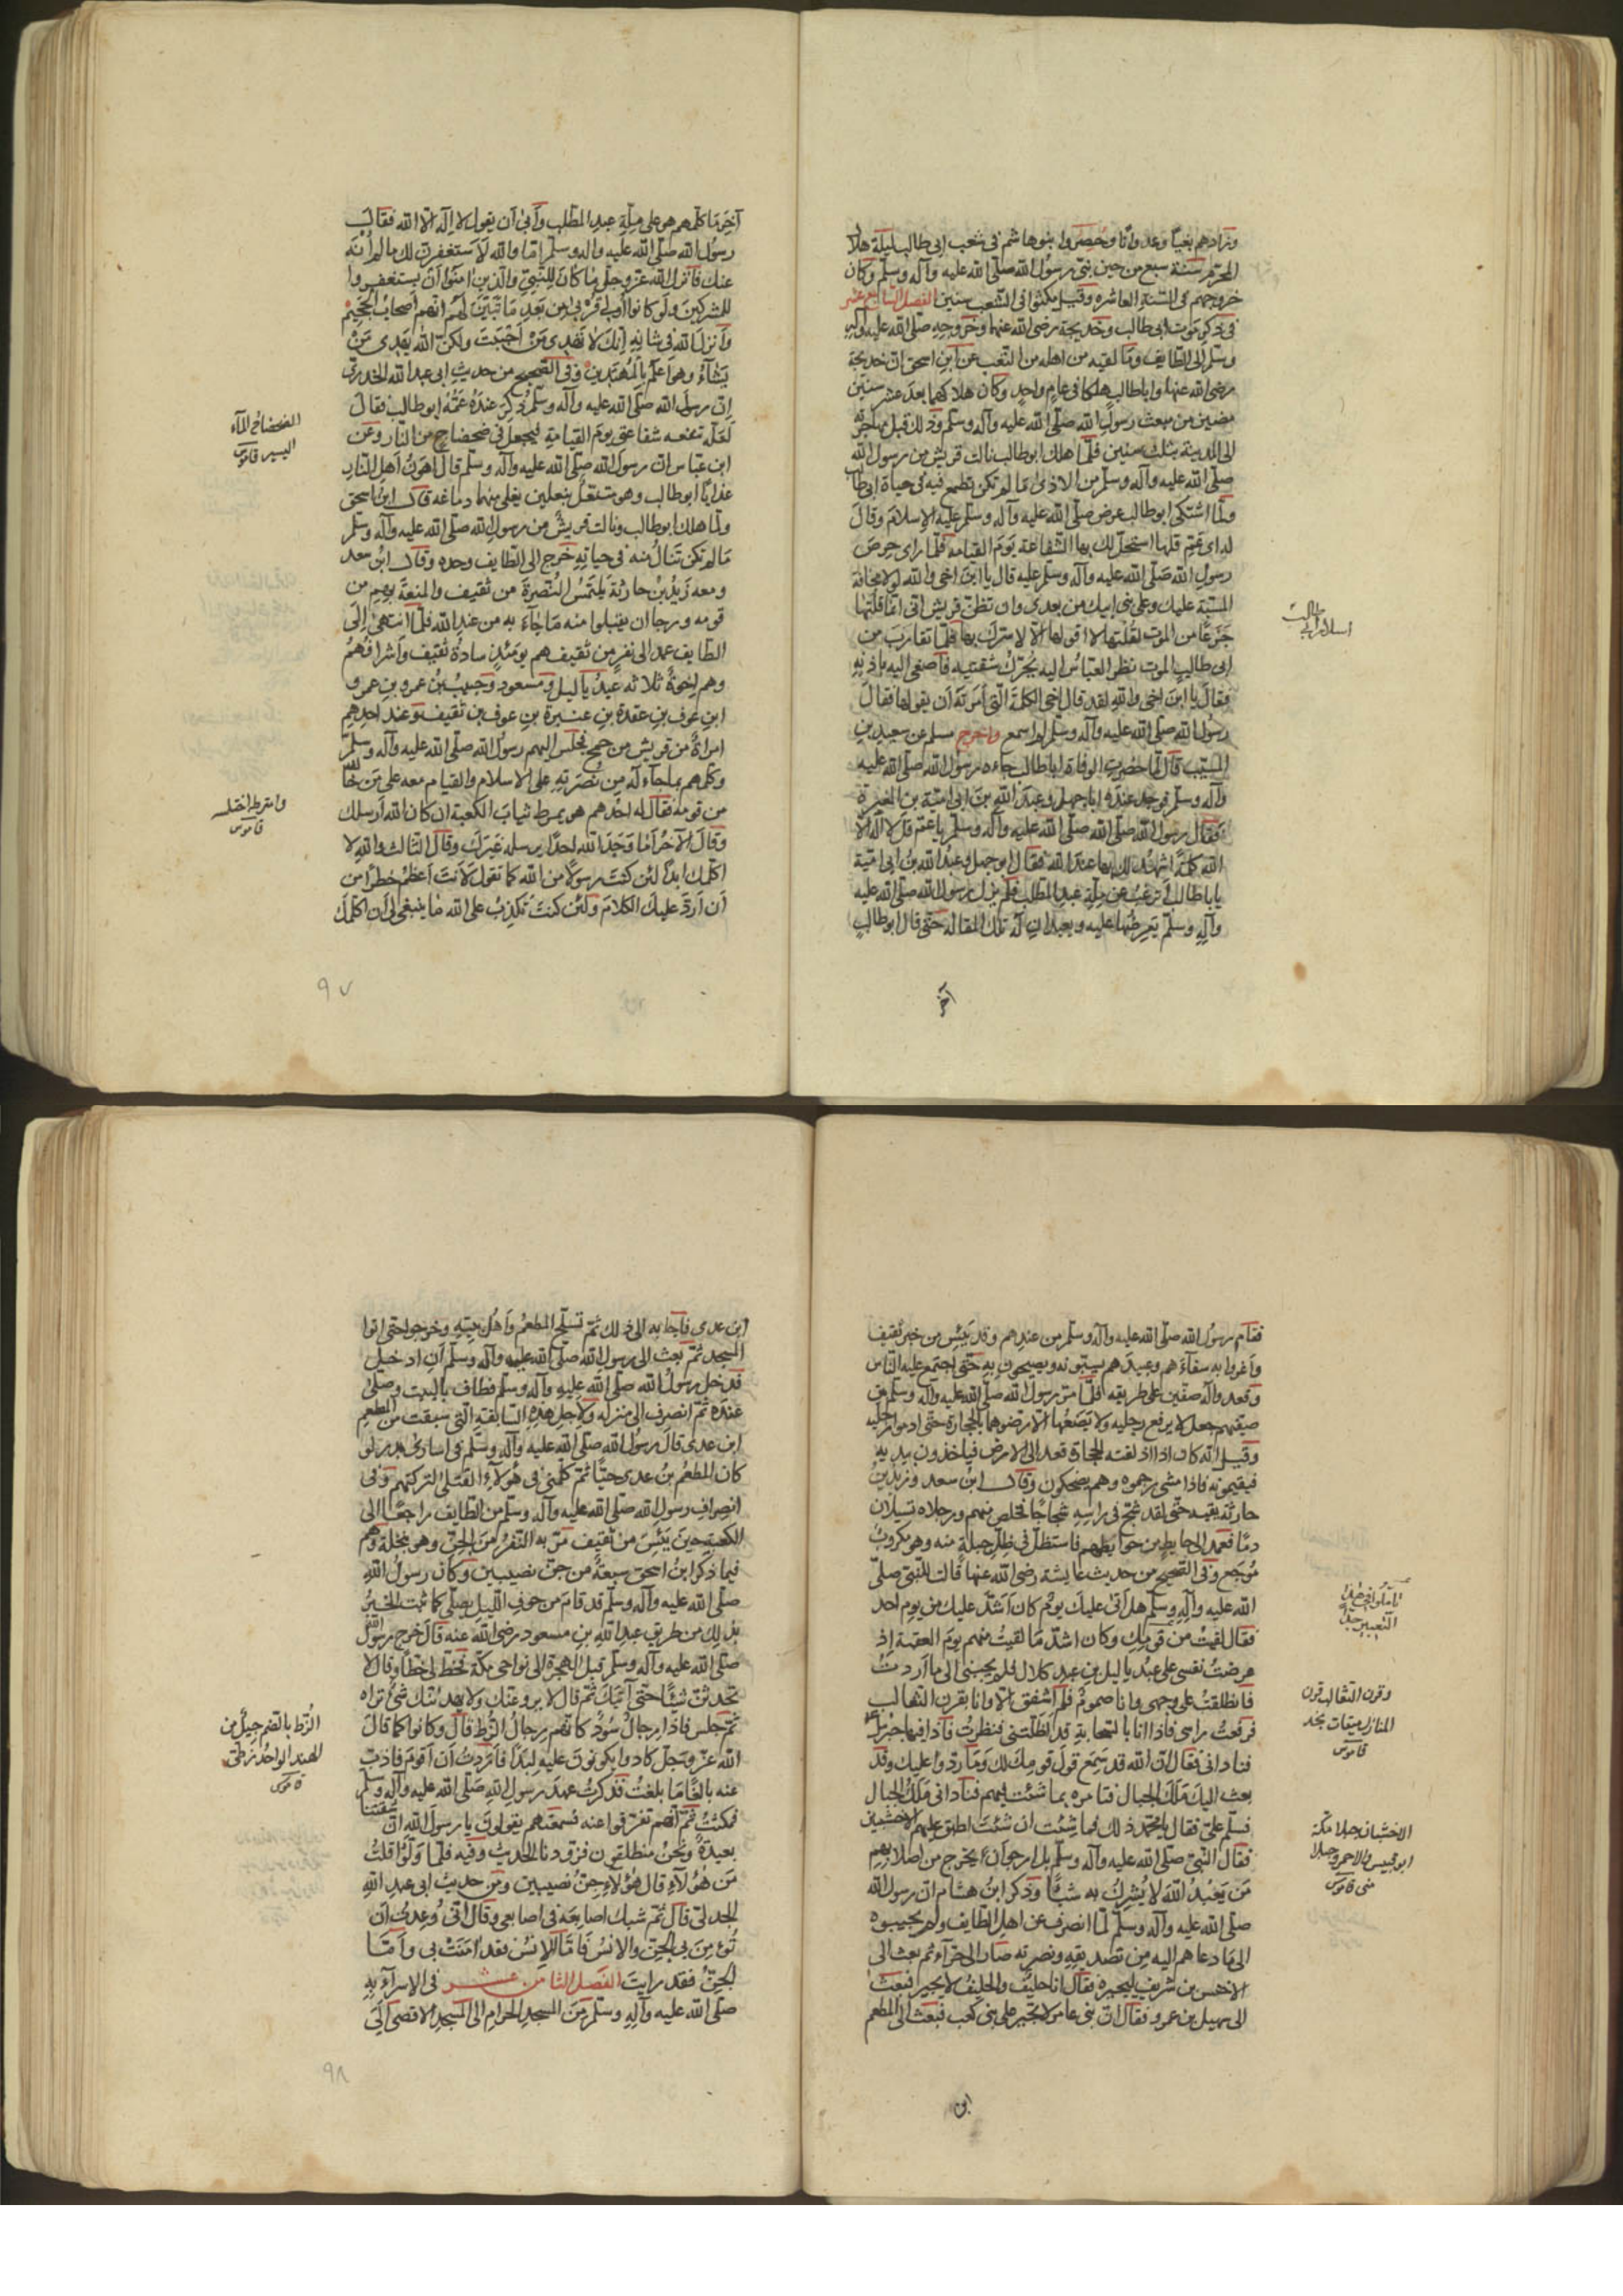 وزادهم بغيا وعدوانا وحصروا بنو هاشم في شعب ابي طالب ليلة هلال
المحرم سنة سبع من حين نبئ رسول الله صلى الله عليه وآله وسلم وكان
خروجهم في السنة العاشره وقيل مكثوا في الشعب سنين الفصل السابع عشر
في ذكر موت ابي طالب وخديجة رضى الله عنها وخروجه صلى الله عليه وآله
وسلم الى الطايف وما لقيه من اهله من التعب عن ابن اسحق ان خديجة
رضى الله عنها وابا طالب هلكا في عام واحد وكان هلاكهما بعد عشر سنين
مضين من مبعث رسول الله صلى الله عليه وآله وسلم وذلك قبل مهاجرته
الى المدينة بثلث سنين فلما هلك ابو طالب نالت قريش من رسول الله
صلى الله عليه وآله وسلم من الاذى ما لم تكن تطمع فيه في حياة ابي طالب
ولما اشتكى ابو طالب عرض صلى الله عليه وآله وسلم عليه الاسلام وقال
له اى عم قلها استحل لك بها الشفاعة يوم القيامه فلما راى حرص
رسول الله صلى الله عليه وآله وسلم عليه قال يا ابن اخى والله لولا مخافة
السبة عليك وعلى بنى ابيك من بعدى وان تظن قريش انى انما قلتها
جزعا من الموت لقلتها لا اقولها الا لاسرك بها فلما تقارب من
ابى طالب الموت نظر العباس اليه يحرك شفتيه فاصغى اليه باذنه
فقال يا ابن اخى والله لقد قال اخى الكلمة التى امرته ان يقولها فقال
رسول الله صلى الله عليه وآله وسلم لم اسمع واخرج مسلم عن سعيد بن
المسيب قال لما حضرت الوفاة ابا طالب جاءه رسول الله صلى الله عليه
وآله وسلم فوجد عنده ابا جهل وعبد الله بن ابى امية بن المغيرة
فقال رسول الله صلى الله عليه وآله وسلم يا عم قل لا اله الا
الله كلمة اشهد لك بها عند الله فقال ابو جهل وعبد الله بن ابى امية
يا با طالب أترغب عن ملة عبد المطلب فلم يزل رسول الله صلى الله عليه
وآله وسلم يعرضها عليه ويعيدان له تلك المقالة حتى قال ابو طالب
اسلام ابى طالب
آخر
آخر ما كلمهم هو على ملة عبد المطلب وأبى أن يقول لا اله الا الله فقال
رسول الله صلى الله عليه وآله وسلم اما والله لأستغفرن لك ما لم أنه
عنك فانزل الله عز وجل ما كان للنبي والذين آمنوا أن يستغفروا
للمشركين ولو كانوا أولى قربى من بعد ما تبين لهم أنهم أصحاب الجحيم
وأنزل الله في شانه إنك لا تهدى من أحببت ولكن الله يهدى من
يشآء وهو أعلم بالمهتدين وفى الصحيح من حديث ابى عبد الله الخدرى
ان رسول الله صلى الله عليه وآله وسلم ذكر عنده عمه ابو طالب فقال
لعله تنفعه شفاعتى يوم القيامة فيجعل في ضحضاح من النار وعن
ابن عباس ان رسول الله صلى الله عليه وآله وسلم قال أهون أهل النار
عذابا ابو طالب وهو متنعل بنعلين يغلى منهما دماغه قال ابن اسحق
ولما هلك ابو طالب ونالت قريش من رسول الله صلى الله عليه وآله وسلم
ما لم تكن تنال منه في حياته خرج الى الطايف وحده وقال ابن سعد
ومعه زيد بن حارثة يلتمس النصرة من ثقيف والمنعة بهم من
قومه ورجا ان يقبلوا منه ما جآء به من عند الله فلما انتهى إلى
الطايف عمد الى نفر من ثقيف هم يومئذ سادة ثقيف وأشرافهم
وهم إخوة ثلاثه عبد ياليل ومسعود وحبيب بن عمرو بن عمرو
ابن عوف بن عقدة بن عنزة بن عوف بن ثقيف وعند احدهم
امراة من قريش من جمح فجلس اليهم رسول الله صلى الله عليه وآله وسلم
وكلمهم بما جآء له من نصرته على الاسلام والقيام معه على من خالفه
من قومه فقال له احدهم هو يمرط ثياب الكعبة ان كان الله أرسلك
وقال الآخر أما وجد الله احدا يرسله غيرك وقال الثالث والله لا
اكلمك ابدا لئن كنت رسولا من الله كما تقول لأنت أعظم خطرا من
أن أرد عليك الكلام ولئن كنت تكذب على الله ما ينبغى لى أن اكلمك
الضحضاح المآء
اليسير قاموس
وامترط اختلسه
قاموس
٩٧
فقام رسول الله صلى الله عليه وآله وسلم من عندهم وقد يئس من خير ثقيف
وأغروا به سفهآءهم وعبيدهم يسبونه ويصيحون به حتى اجتمع عليه الناس
وقعدوا له صفين على طريقه فلما مر رسول الله صلى الله عليه وآله وسلم بين
صفيهم جعل لا يرفع رجليه ولا يضعهما الا رضوهما بالحجارة حتى ادموا رجليه
وقيل انه كان اذا اذلقته الحجارة قعد الى الارض فياخذون بيديه
فيقيمونه فاذا مشى رجموه وهم يضحكون وقال ابن سعد وزيد بن
حارثة يقيه حتى لقد شج في راسه شجاجا فخلص منهم ورجلاه تسيلان
دما فعمد الى حايط من حوايطهم فاستظل في ظل حبلة منه وهو مكروب
موجع وفى الصحيح من حديث عايشة رضى الله عنها قالت للنبى صلى
الله عليه وآله وسلم هل أتى عليك يوم كان أشد عليك من يوم احد
فقال لقيت من قومك وكان اشد ما لقيت منهم يوم العقبة اذ
عرضت نفسى على عبد ياليل بن عبد كلال فلم يجبنى الى ما أردت
فانطلقت على وجهى وانا مهموم فلم أستفق الا وانا بقرن الثعالب
فرفعت راسى فاذا انا بالسحابة قد أظلتنى فنظرت فاذا فيها جبريل
فنادانى فقال ان الله قد سمع قول قومك لك وما ردوا عليك وقد
بعث اليك ملك الجبال فتامره بما شئت فيهم فنادانى ملك الجبال
فسلم على فقال يا محمد ذلك فما شئت ان شئت اطبق عليهم الاخشبين
فقال النبى صلى الله عليه وآله وسلم بل ارجو ان يخرج من اصلابهم
من يعبد الله لا يشرك به شيئا وذكر ابن هشام ان رسول الله
صلى الله عليه وآله وسلم لما انصرف عن اهل الطايف ولم يجيبوه
الى ما دعاهم اليه من تصديقه ونصرته صار الى حرآء ثم بعث الى
الاخنس بن شريق ليجيره فقال انا حليف والحليف لا يجير فبعث
الى سهيل بن عمرو فقال ان بنى عامر لا تجير على بنى كعب فبعث الى المطعم
وقرن الثعالب قرن
المنازل ميقات نجد
قاموس
الاخشبان جبلا مكة
ابو قبيس والاحمر وجبلا
منى قاموس
ابن
ابن عدى فأجابه الى ذلك ثم تسلح المطعم وأهل بيته وخرجوا حتى اتوا
المسجد ثم بعث الى رسول الله صلى الله عليه وآله وسلم أن ادخل
فدخل رسول الله صلى الله عليه وآله وسلم فطاف بالبيت وصلى
عنده ثم انصرف الى منزله ولاجل هذه السابقة التى سبقت من المطعم
ابن عدى قال رسول الله صلى الله عليه وآله وسلم في اسارى بدر لو
كان المطعم بن عدى حيا ثم كلمنى في هولآء القتلى لتركتهم وفى
انصراف رسول الله صلى الله عليه وآله وسلم من الطايف راجعا الى
الكعبة حين يئس من ثقيف مر به النفر من الجن وهو بنخلة وهم
فيما ذكر ابن اسحق سبعة من جن نصيبين وكان رسول الله
صلى الله عليه وآله وسلم قد قام من جوف الليل يصلى كما ثبت الخبر
بذلك من طريق عبد الله بن مسعود رضى الله عنه قال خرج رسول الله
صلى الله عليه وآله وسلم قبل الهجرة الى نواحى مكة فخط لى خطا وقال لا
تحدثن شيئا حتى آتيك ثم قال لا يروعنك ولا يهدنك شئ تراه
ثم جلس فاذا رجال سود كانهم رجال الزط قال وكانوا كما قال
الله عز وجل كادوا يكونون عليه لبدا فأردت أن أقوم فاذب
عنه بالغا ما بلغت فذكرت عهد رسول الله صلى الله عليه وآله وسلم
فمكثت ثم انهم تفرقوا عنه فسمعتهم يقولون يا رسول الله ان شقتنا
بعيدة ونحن منطلقون فزودنا الحديث وفيه فلما ولوا قلت
من هؤلآء قال هؤلآء جن نصيبين ومن حديث ابى عبد الله
الجدلى قال ثم شبك اصابعه في اصابعى وقال انى وعدت أن
تؤمن بى الجن والانس فأما الانس فقد آمنت بى وأما
الجن فقد رايت الفصل الثامن عشر في الاسرآء به
صلى الله عليه وآله وسلم من المسجد الحرام الى المسجد الاقصى الى
الزط بالضم جيل من
الهند الواحد زطى
قاموس
٩٨